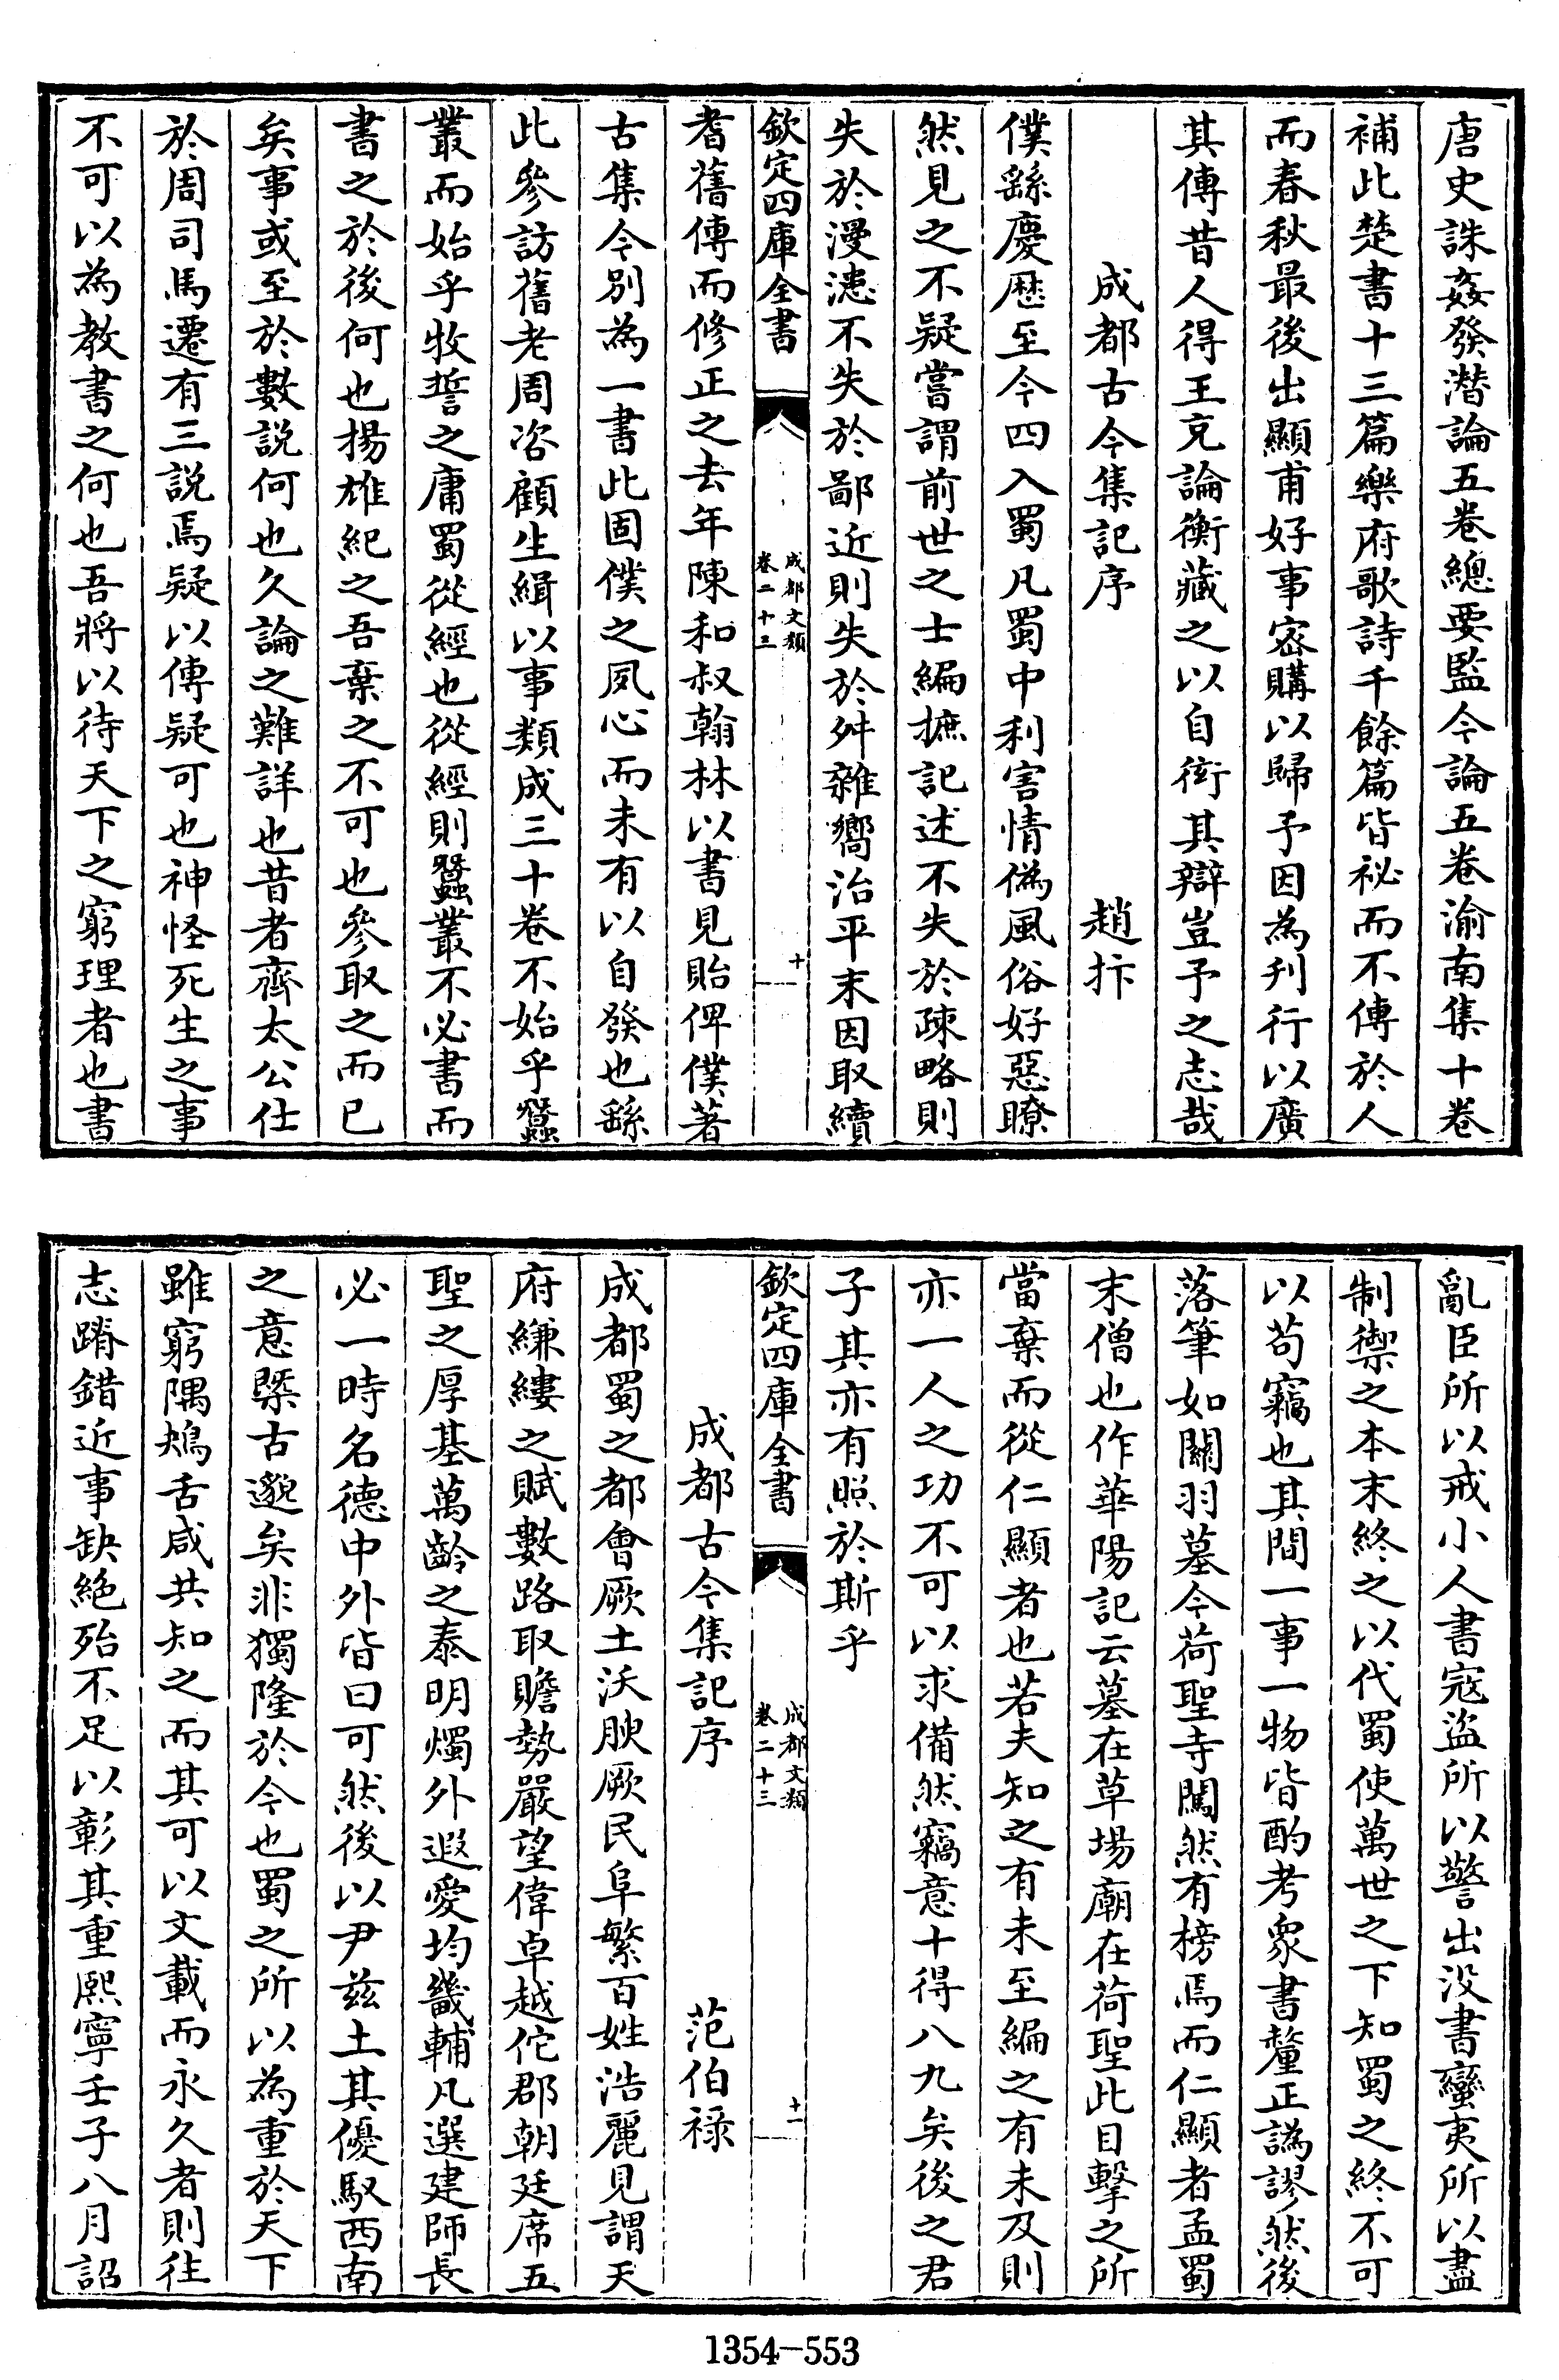 唐史誅姦發潛論五卷總要監今論五卷渝南集十卷
補此楚書十三篇樂府歌詩千餘篇皆祕而不傳於人
而春秋最後出顯甫好事宻購以歸予因為刋行以廣
其傳昔人得王充論衡藏之以自衒其辯豈予之志哉
成都古今集記序 趙抃
僕繇慶厯至今四入蜀凡蜀中利害情偽風俗好惡瞭
然見之不疑嘗謂前世之士編摭記述不失於疎略則
失於漫漶不失於鄙近則失於舛雜嚮治平末因取續
欽定四庫全書 成都文類 卷二十三 十
耆舊傳而修正之去年陳和叔翰林以書見貽俾僕著
古集今别為一書此固僕之夙心而未有以自發也繇
此參訪舊老周咨顧生緝以事類成三十卷不始乎蠶
叢而始乎牧誓之庸蜀從經也從經則蠶叢不必書而
書之於後何也揚雄紀之吾棄之不可也參取之而已
矣事或至於數說何也久論之難詳也昔者齊太公仕
於周司馬遷有三説焉疑以傳疑可也神怪死生之事
不可以為教書之何也吾將以待天下之窮理者也書
亂臣所以戒小人書寇盜所以警出沒書蠻夷所以盡
制禦之本末終之以代蜀使萬世之下知蜀之終不可
以苟竊也其間一事一物皆酌考衆書釐正譌謬然後
落筆如關羽墓今荷聖寺闖然有榜焉而仁顯者孟蜀
末僧也作華陽記云墓在草場廟在荷聖此目擊之所
當棄而從仁顯者也若夫知之有未至編之有未及則
亦一人之功不可以求備然竊意十得八九矣後之君
子其亦有照於斯乎
欽定四庫全書 成都文類 卷二十三 十一
成都古今集記序 范伯祿
成都蜀之都會厥土沃腴厥民阜繁百姓浩麗見謂天
府縑縷之賦數路取贍勢嚴望偉卓越佗郡朝廷席五
聖之厚基萬齡之泰明燭外遐愛均畿輔凡選建師長
必一時名德中外皆曰可然後以尹兹土其優馭西南
之意槩古邈矣非獨隆於今也蜀之所以為重於天下
雖窮隅鴂舌咸共知之而其可以文載而永久者則往
志躋錯近事缺絶殆不足以彰其重熈寧壬子八月詔
1354—553